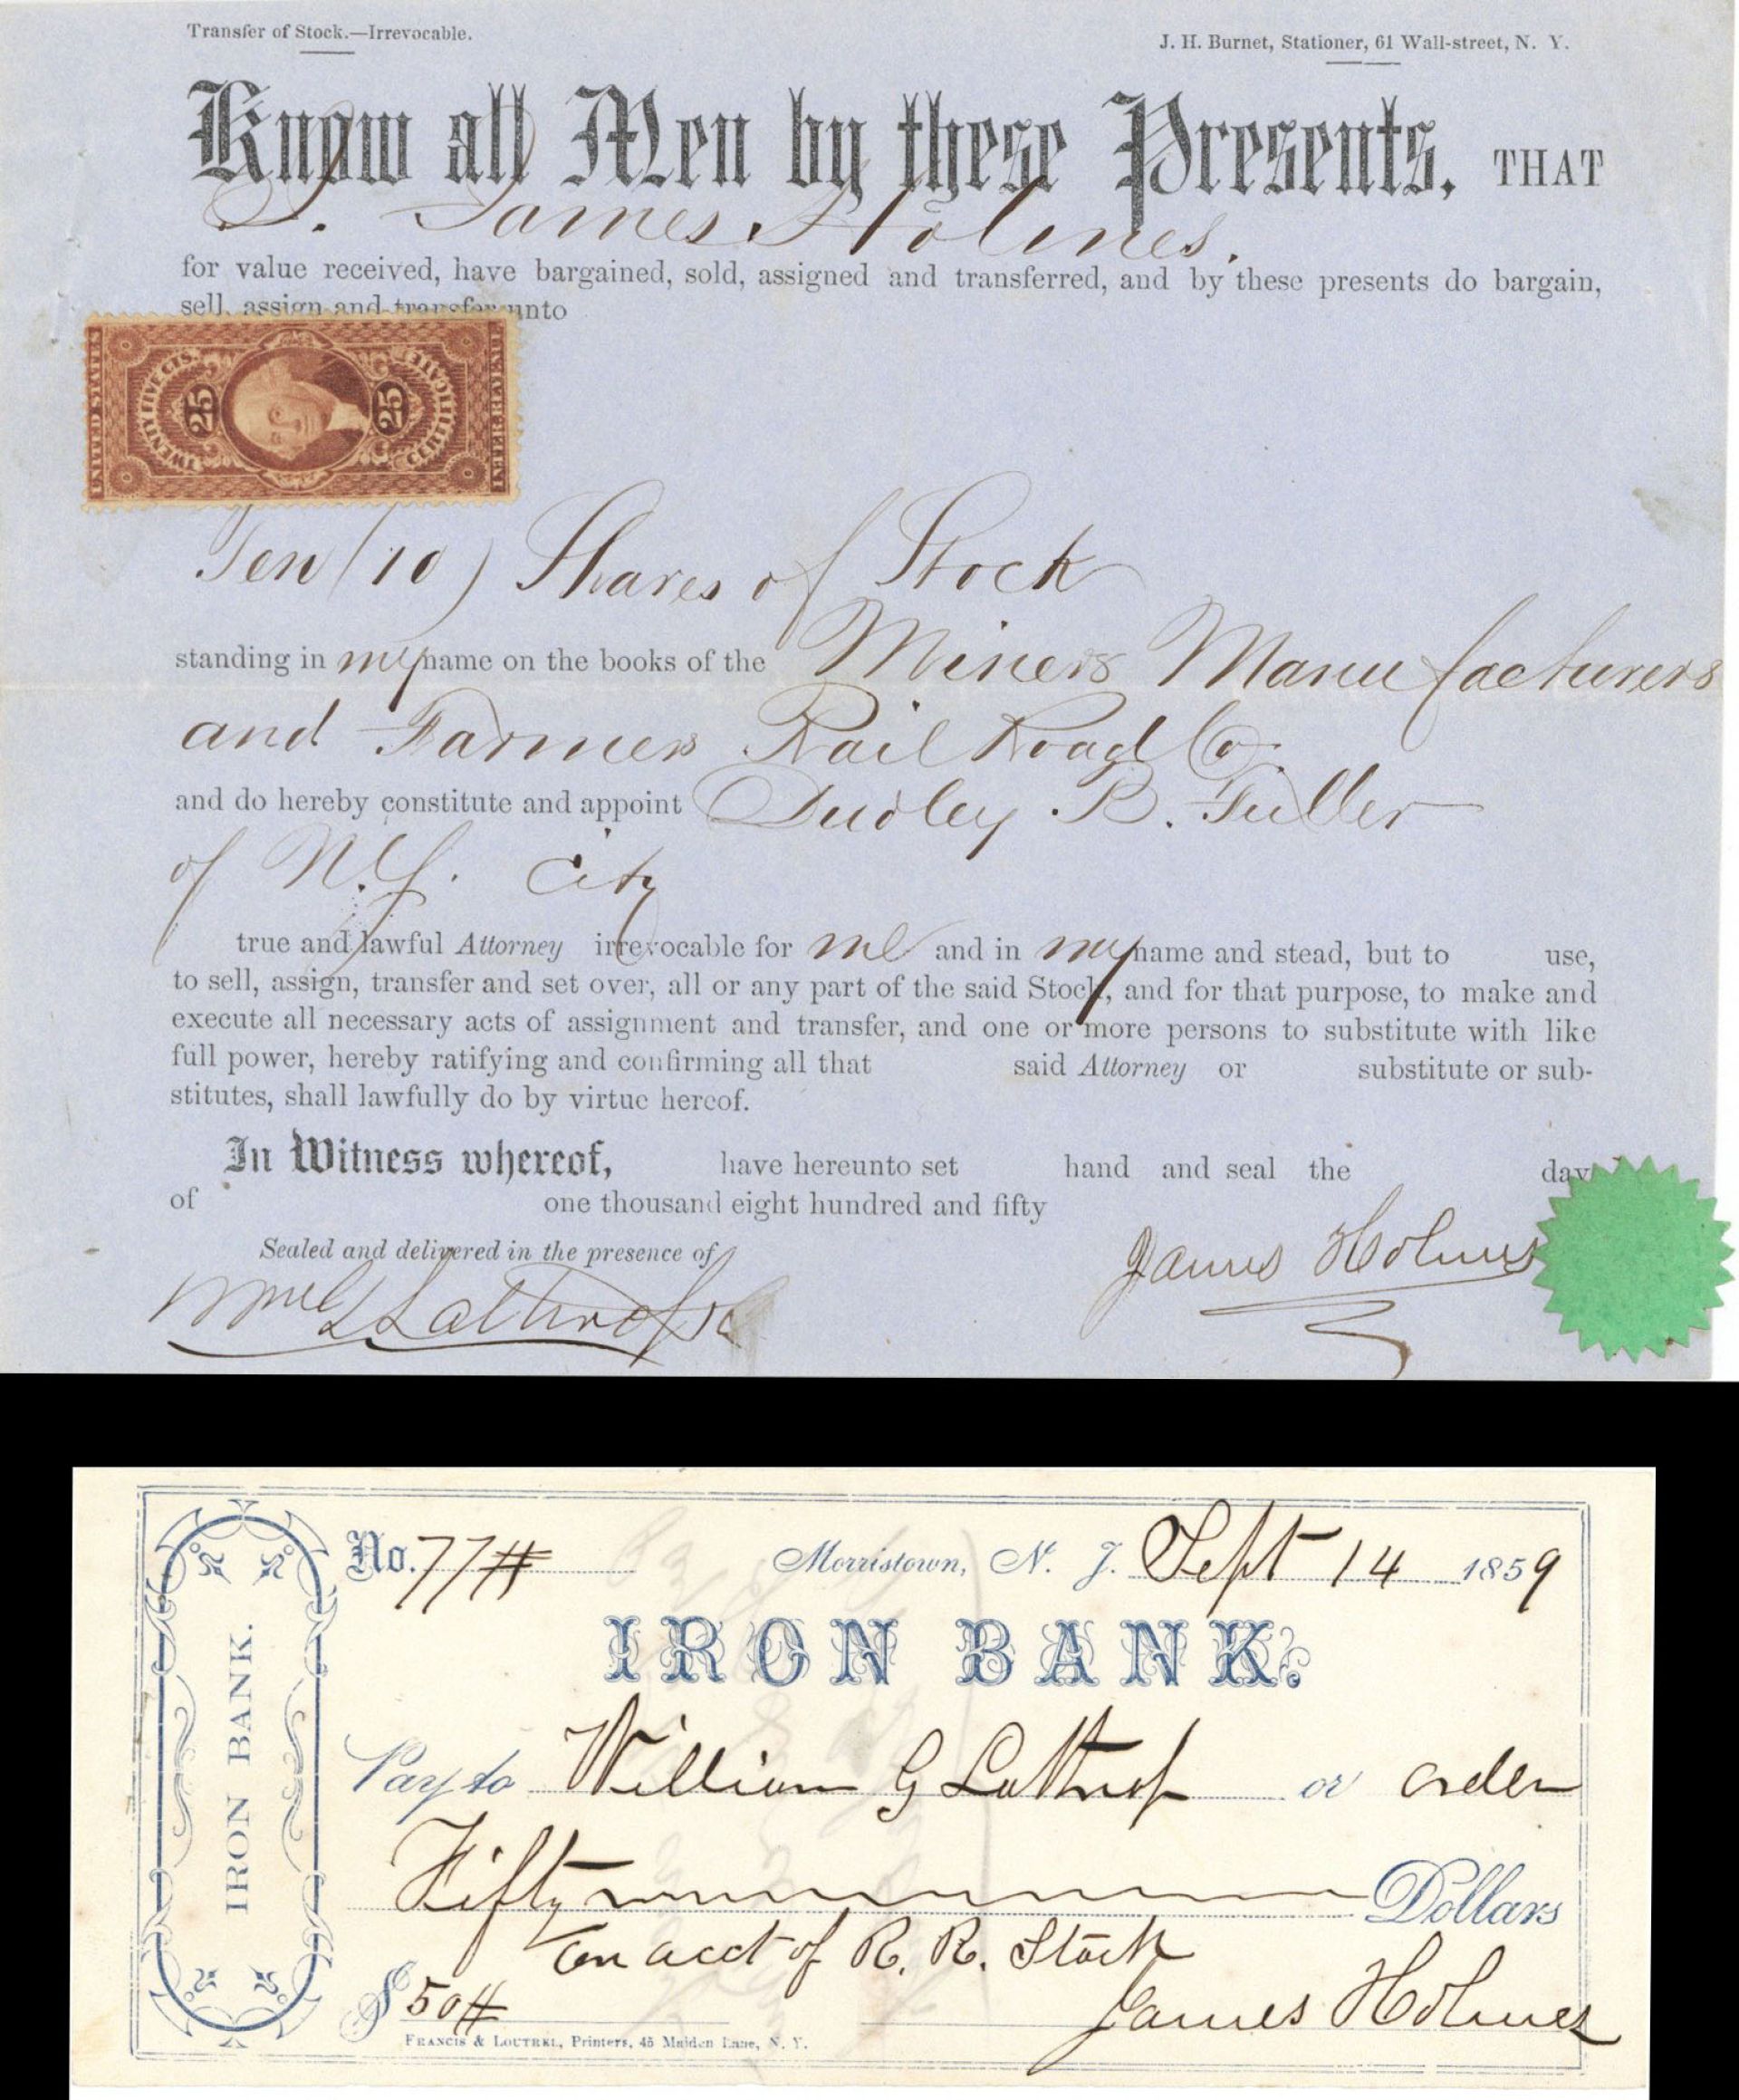 Transfer of Stock.—Irrevocable.
J. H. Burnet, Stationer, 61 Wall-street, N. Y.
Know all Men by these Presents, THAT
I. James Holmes.
for value received, have bargained, sold, assigned and transferred, and by these presents do bargain,
sell, assign and transfer unto
UNITED STATES
TWENTY FIVE CTS.
25
25
CERTIFICATE
INTER. REVENUE
Ten (10) Shares of Stock
standing in my name on the books of the Miners Manufacturers
and Farmers Rail Road Co.
and do hereby constitute and appoint Dudley B. Fuller
of N.Y. City
true and lawful Attorney irrevocable for me and in my name and stead, but to use,
to sell, assign, transfer and set over, all or any part of the said Stock, and for that purpose, to make and
execute all necessary acts of assignment and transfer, and one or more persons to substitute with like
full power, hereby ratifying and confirming all that said Attorney or substitute or sub-
stitutes, shall lawfully do by virtue hereof.
In Witness whereof, have hereunto set hand and seal the day
of one thousand eight hundred and fifty
Sealed and delivered in the presence of
James Holmes
Wm G Lathrop
IRON BANK.
No. 77# Morristown, N. J. Sept 14 1859
IRON BANK.
Pay to William G Lathrop or order
Fifty Dollars
on acct of R. R. Stock
$ 50# James Holmes
FRANCIS & LOUTREL, Printers, 45 Maiden Lane, N. Y.